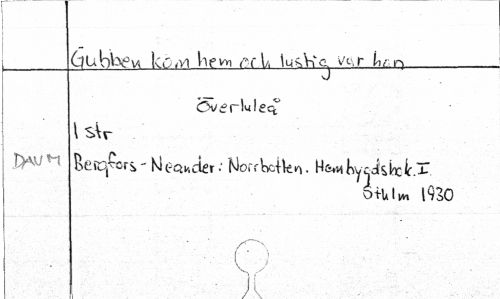 Gubben kom hem och lustig var han
Överluleå
1 str
DAUM Bergfors-Neander: Norrbotten. Hembygdsbok. I.
Sthlm 1930